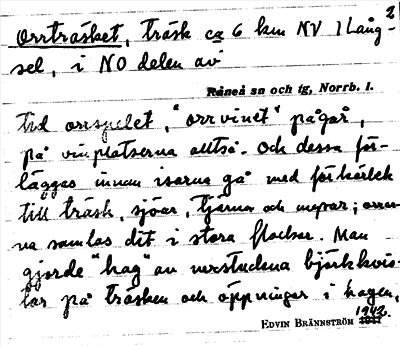 2
Orrträsket, träsk ca 6 km NV I Lång-
sel, i NO delen av
Råneå sn och tg, Norrb. l.
tid orrspelet, "orrvinet" pågår,
på vinplatserna alltså. Och dessa för-
lägges innan isarna gå med förkärlek
till träsk, sjöar, tjärnar och myrar; orrar-
na samlas dit i stora flockar. Man
gjorde "hag" av nerstuckna björkkvis-
tar på träsken och öppningar i hagen,
Edvin Brännström 1942.